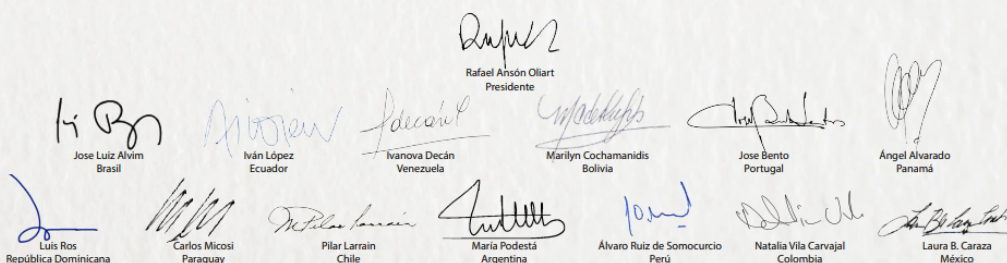 Rafael Ansón Oliart
Presidente
Jose Luiz Alvim
Brasil
Iván López
Ecuador
Ivanova Decán
Venezuela
Marilyn Cochamanidis
Bolivia
Jose Bento
Portugal
Ángel Alvarado
Panamá
Luis Ros
República Dominicana
Carlos Micosi
Paraguay
M Pilar Larrain
Pilar Larrain
Chile
María Podestá
Argentina
Álvaro Ruiz de Somocurcio
Perú
Natalia Vila Carvajal
Colombia
Laura B. Caraza
México